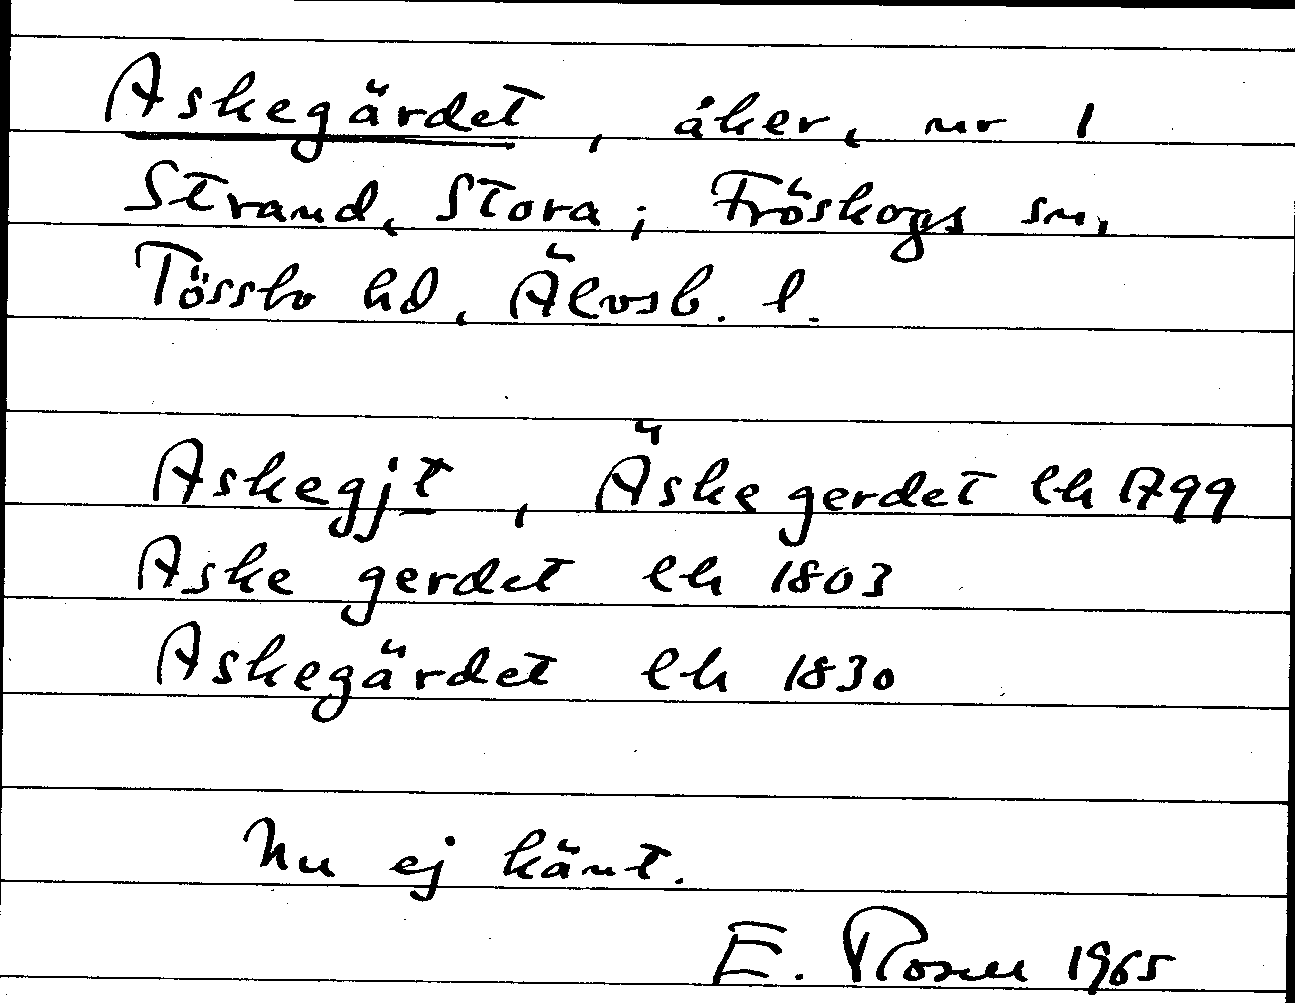 Askegärdet, åker, nr 1
Strand, Stora; Fröskogs sn,
Tössbo hd, Älvsb. l.
Askegjt, Äskegerdet lh 1799
Aske gerdet lh 1803
Askegärdet lh 1830
Nu ej känt.
E. Rosell 1965